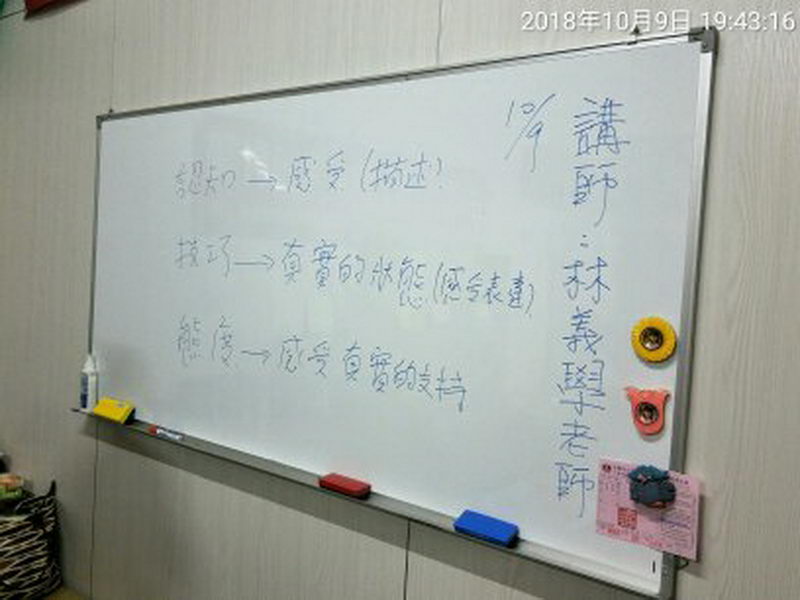 2018年10月9日 19:43:16
10/9
講師:林義學老師
認知→感受(描述)
技巧→真實的狀態(感受表達)
態度→感受真實的支持